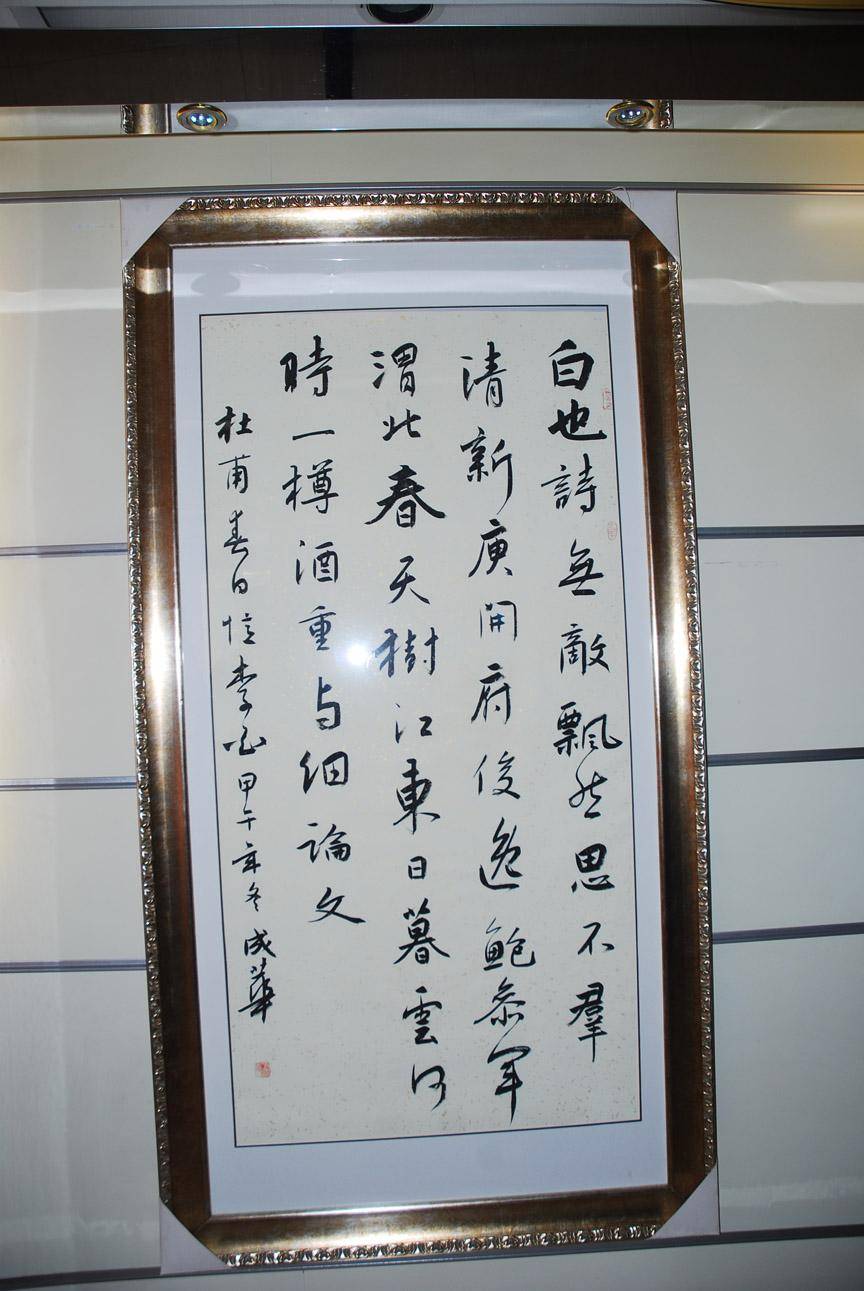 白也詩無敵飄然思不羣
清新庾開府俊逸鮑參軍
渭北春天樹江東日暮雲何
時一樽酒重与細論文
杜甫春日憶李白甲午年冬成華